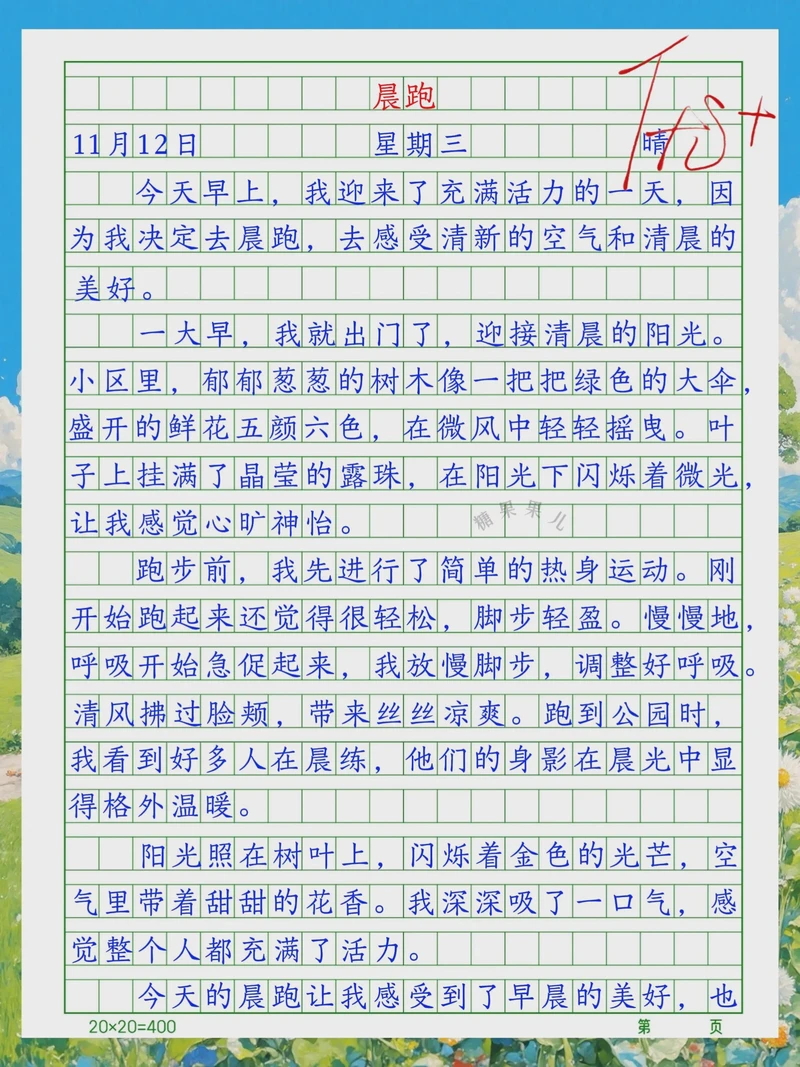 晨跑
11月12日 星期三 晴
今天早上，我迎来了充满活力的一天，因
为我决定去晨跑，去感受清新的空气和清晨的
美好。
一大早，我就出门了，迎接清晨的阳光。
小区里，郁郁葱葱的树木像一把把绿色的大伞，
盛开的鲜花五颜六色，在微风中轻轻摇曳。叶
子上挂满了晶莹的露珠，在阳光下闪烁着微光，
让我感觉心旷神怡。
糖果果儿
跑步前，我先进行了简单的热身运动。刚
开始跑起来还觉得很轻松，脚步轻盈。慢慢地，
呼吸开始急促起来，我放慢脚步，调整好呼吸。
清风拂过脸颊，带来丝丝凉爽。跑到公园时，
我看到好多人在晨练，他们的身影在晨光中显
得格外温暖。
阳光照在树叶上，闪烁着金色的光芒，空
气里带着甜甜的花香。我深深吸了一口气，感
觉整个人都充满了活力。
今天的晨跑让我感受到了早晨的美好，也
20×20=400 第 页